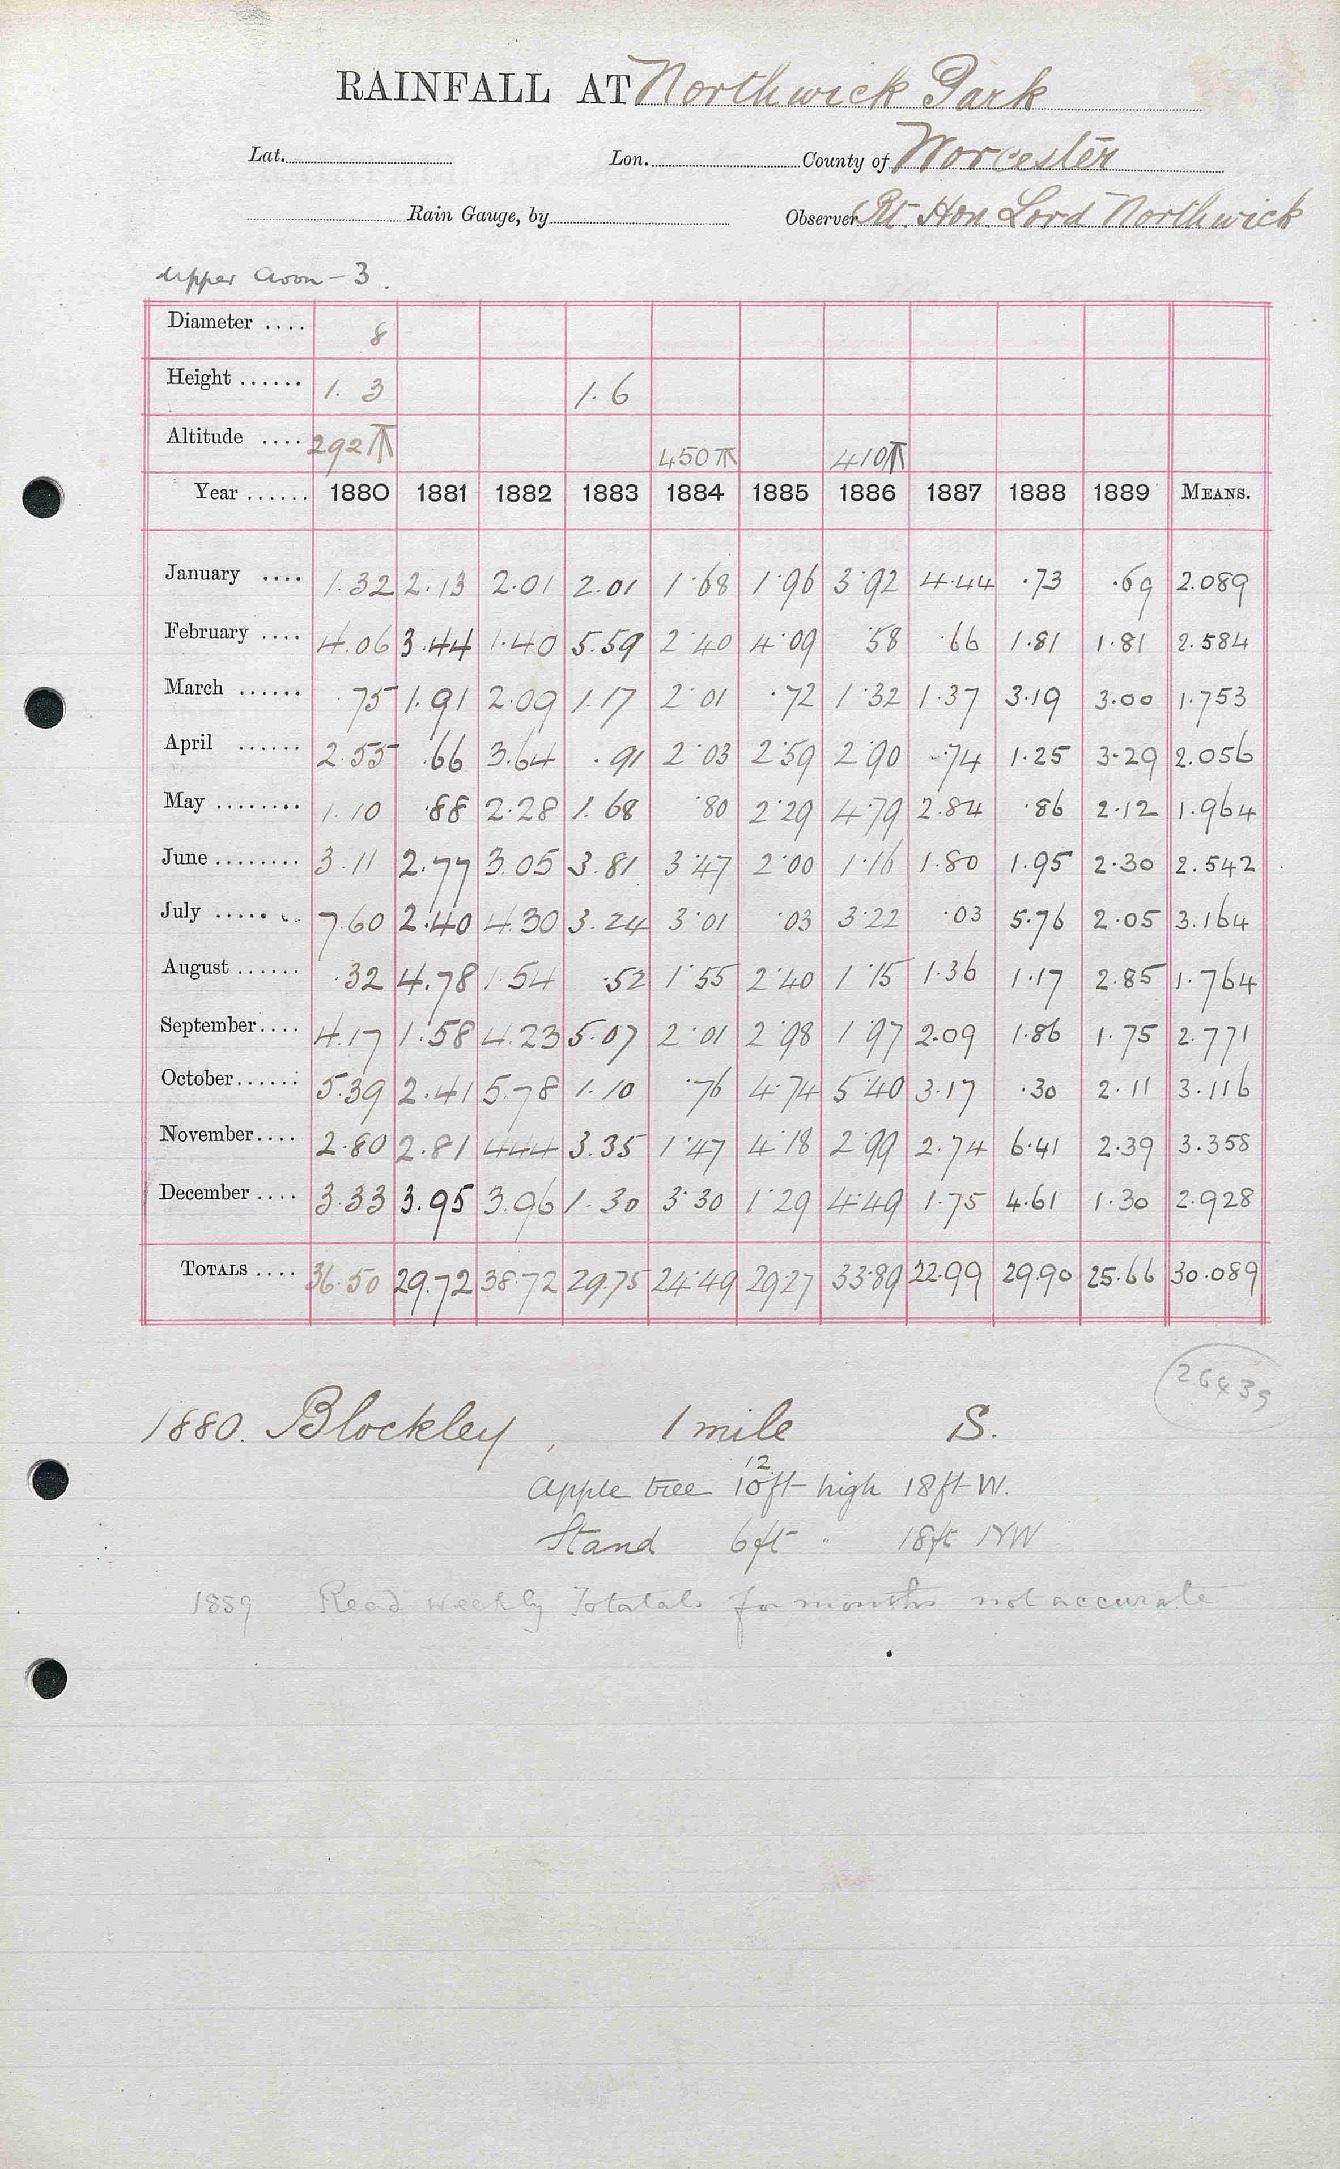 RAINFALL AT Northwick Park
Lat. Lon. County of Worcester
Rain Gauge, by Observer Rt. Hon. Lord Northwick
Upper Avon - 3.
Diameter .... 8
Height ...... 1. 3 1. 6
Altitude .... 292 450 410
Year ...... 1880 1881 1882 1883 1884 1885 1886 1887 1888 1889 MEANS.
January .... 1.32 2.13 2.01 2.01 1.68 1.96 3.92 4.44 .73 .69 2.089
February .... 4.06 3.44 1.40 5.59 2.40 4.09 .58 .66 1.81 1.81 2.584
March ...... .75 1.91 2.09 1.17 2.01 .72 1.32 1.37 3.19 3.00 1.753
April ...... 2.55 .66 3.64 .91 2.03 2.59 2.90 .74 1.25 3.29 2.056
May ........ 1.10 .88 2.28 1.68 .80 2.29 4.79 2.84 .86 2.12 1.964
June ........ 3.11 2.77 3.05 3.81 3.47 2.00 1.16 1.80 1.95 2.30 2.542
July ..... .. 7.60 2.40 4.30 3.24 3.01 .03 3.22 .03 5.76 2.05 3.164
August ...... .32 4.78 1.54 .52 1.55 2.40 1.15 1.36 1.17 2.85 1.764
September.... 4.17 1.58 4.23 5.07 2.01 2.98 1.97 2.09 1.86 1.75 2.771
October...... 5.39 2.41 5.78 1.10 .76 4.74 5.40 3.17 .30 2.11 3.116
November.... 2.80 2.81 4.44 3.35 1.47 4.18 2.99 2.74 6.41 2.39 3.358
December .... 3.33 3.95 3.96 1.30 3.30 1.29 4.49 1.75 4.61 1.30 2.928
TOTALS .... 36.50 29.72 38.72 29.75 24.49 29.27 33.89 22.99 29.90 25.66 30.089
26439
1880. Blockley, 1 mile S.
12
Apple tree 10ft high 18ft W.
Stand 6ft " 18ft NW
1889 Read weekly Totatals for months not accurate